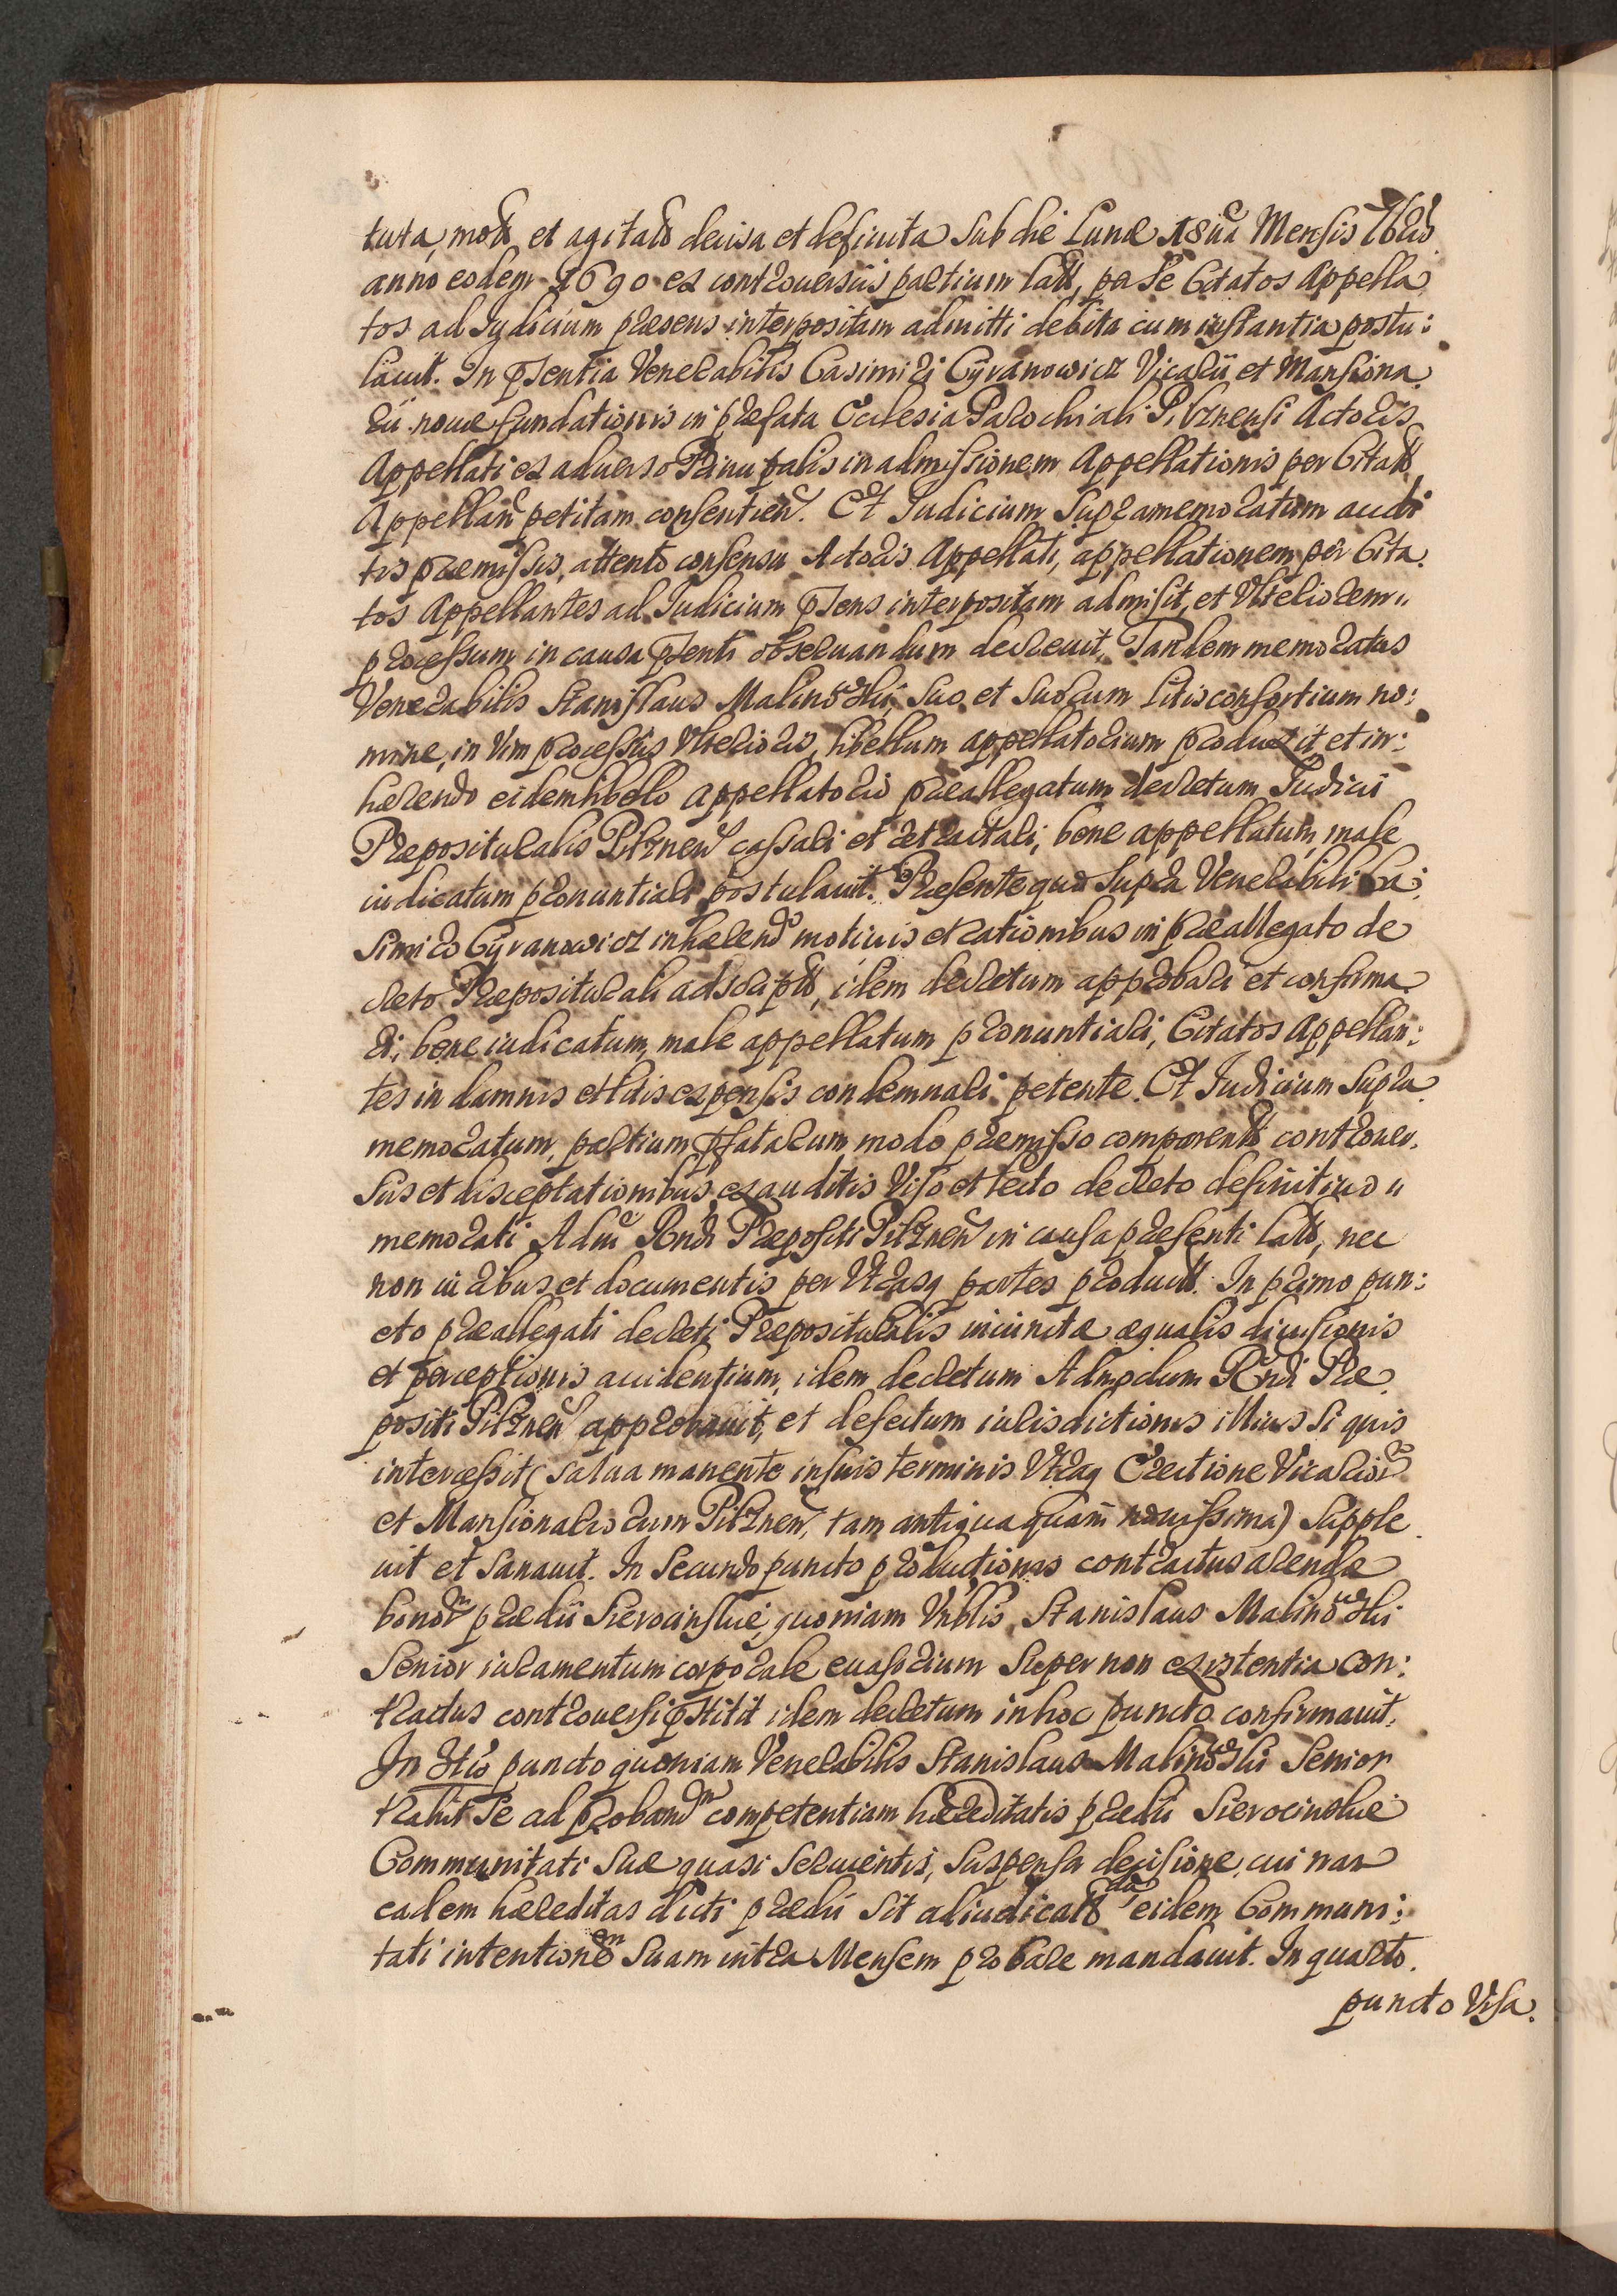 tuta, mota et agitata decisa et definita sub die Lunæ 18ua Mensis 7bris
anno eodem 1690 ex controuersiis partium lata, per se Citatos Appella
tos ad Iudicium præsens interpositam admitti debita cum instantia postu:
lauit. In pñsentia Venerabilis Casimiri Cyranowicz Vicarii et Mansiona
rii nouæ fundationis in præfata Ecclesia Parochiali Pilznensi Actoris
Appellati ex aduerso Principalis in admissionem Appellationis per Citatos
Appellan petitam consentien. Et Iudicium supramemoratum audi
tis præmissis, attento consensu Actoris Appellati, appellationem per Cita
tos Appellantes ad Iudicium pñsens interpositam admisit, et Vlteriorem
processum in causa pñsenti obseruandum decreuit. Tandem memoratus
Venerabilis Stanislaus Malinowski, suo et suorum Litisconsortium no:
mine, in vim processus Vlterioris, libellum appellatorium produxit et in:
hærendo eidem libello appellatorio præallegatum decretum Iudicii
Præpositularis Pilznen cassari et retractari, bene appellatum, male
iudicatum pronuntiari postulauit. Præsente quo supra Venerabili Ca:
simiro Cyranowicz inhærendo motiuis et rationibus in præallegato de
creto Præpositurali adscriptis, idem decretum approbari et confirma
ri, bene iudicatum, male appellatum pronuntiari, Citatos Appellan:
tes in damnis et litis expensis condemnari petente. Et Iudicium supra
memoratum, partium pfatarum modo præmisso comparentium controuer
siis et disceptationibus exauditis Viso et lecto decreto definitiuo
memorati Admi Rndi Præpositi Pilznen in causa præsenti lato, nec
non iuribus et documentis per Vtrasq partes productis. In primo pun:
cto præallegati decreti Præpositularis iniunctæ æqualis diuisionis
et perceptionis accidentium, idem decretum Admodum Rndi Præ
positi Pilznen approbauit, et defectum iurisdictionis illius si quis
intercessit (salua manente in suis terminis Vtraq Erectione Vicarior
et Mansionariorum Pilznen, tam antiqua quam nouissima) supple
uit et sanauit. In secundo puncto productionis contractus arendæ
bonorum prædii Sierocinskie, quoniam Vnblis Stanislaus Malinowski
Senior iuramentum corporale euasorium super non existentia con:
tractus controuersi pstitit idem decretum in hoc puncto confirmauit.
In 3tio puncto quoniam Venerabilis Stanislaus Malinowski Senior
trahit se ad proband competentiam hæreditatis prædii Sierocinskie
Communitati suæ quasi seruientis, suspensa decisione, cui nam
eadem hæreditas dicti prædii sit adiudicanda eidem Communi:
tati intentionem suam intra Mensem probare mandauit. In quarto
puncto Visa